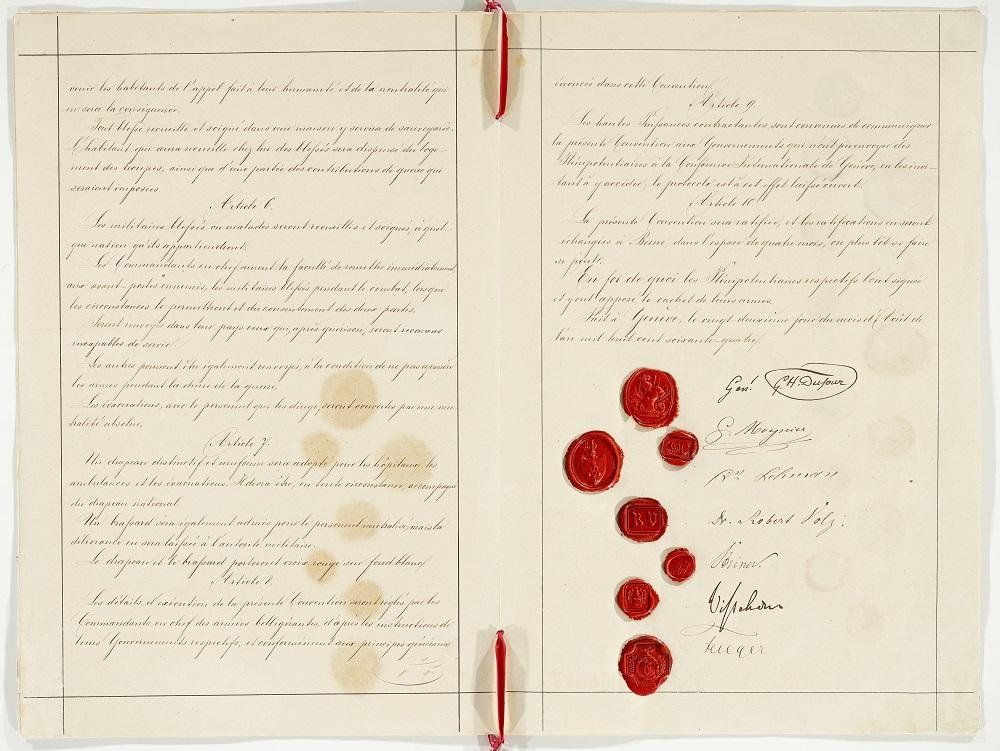 venir les habitants de l'appel fait à leur humanité et de la neutralité qui
en sera la conséquence.
Tout blessé recueilli et soigné dans une maison y servira de sauvegarde.
L'habitant qui aura recueilli chez lui des blessés sera dispensé du loge-
ment des troupes, ainsi que d'une partie des contributions de guerre qui
seraient imposées.
Article 6.
Les militaires blessés ou malades seront recueillis et soignés, à quel-
que nation qu'ils appartiendront.
Les Commandants en chef auront la faculté de remettre immédiatement
aux avant-postes ennemis, les militaires blessés pendant le combat, lorsque
les circonstances le permettront et du consentement des deux parties.
Seront renvoyés dans leur pays ceux qui, après guérison, seront reconnus
incapables de servir.
Les autres pourront être également renvoyés, à la condition de ne pas reprendre
les armes pendant la durée de la guerre.
Les évacuations, avec le personnel qui les dirige, seront couvertes par une neu-
tralité absolue.
Article 7.
Un drapeau distinctif et uniforme sera adopté pour les hôpitaux, les
ambulances et les évacuations. Il devra être, en toute circonstance, accompagné
du drapeau national.
Un brassard sera également admis pour le personnel neutralisé, mais la
délivrance en sera laissée à l'autorité militaire.
Le drapeau et le brassard porteront croix rouge sur fond blanc.
Article 8.
Les détails d'exécution de la présente Convention seront réglés par les
Commandants en chef des armées belligérantes, d'après les instructions de
leurs Gouvernements respectifs, et conformément aux principes généraux
énoncés dans cette Convention.
Article 9.
Les hautes Puissances contractantes sont convenues de communiquer
la présente Convention aux Gouvernements qui n'ont pu envoyer des
Plénipotentiaires à la Conférence Internationale de Genève, en les invi-
tant à y accéder; le protocole est à cet effet laissé ouvert.
Article 10.
La présente Convention sera ratifiée, et les ratifications en seront
échangées à Berne, dans l'espace de quatre mois, ou plus tôt si faire
se peut.
En foi de quoi les Plénipotentiaires respectifs l'ont signée
et y ont apposé le cachet de leurs armes.
Fait à Genève, le vingt deuxième jour du mois d'Août de
l'an mil huit cent soixante-quatre.
Genl. G. H. Dufour
G. Moynier
Dr. Lehmann
Dr. Robert Volz.
RV
Steiner.
Visschers